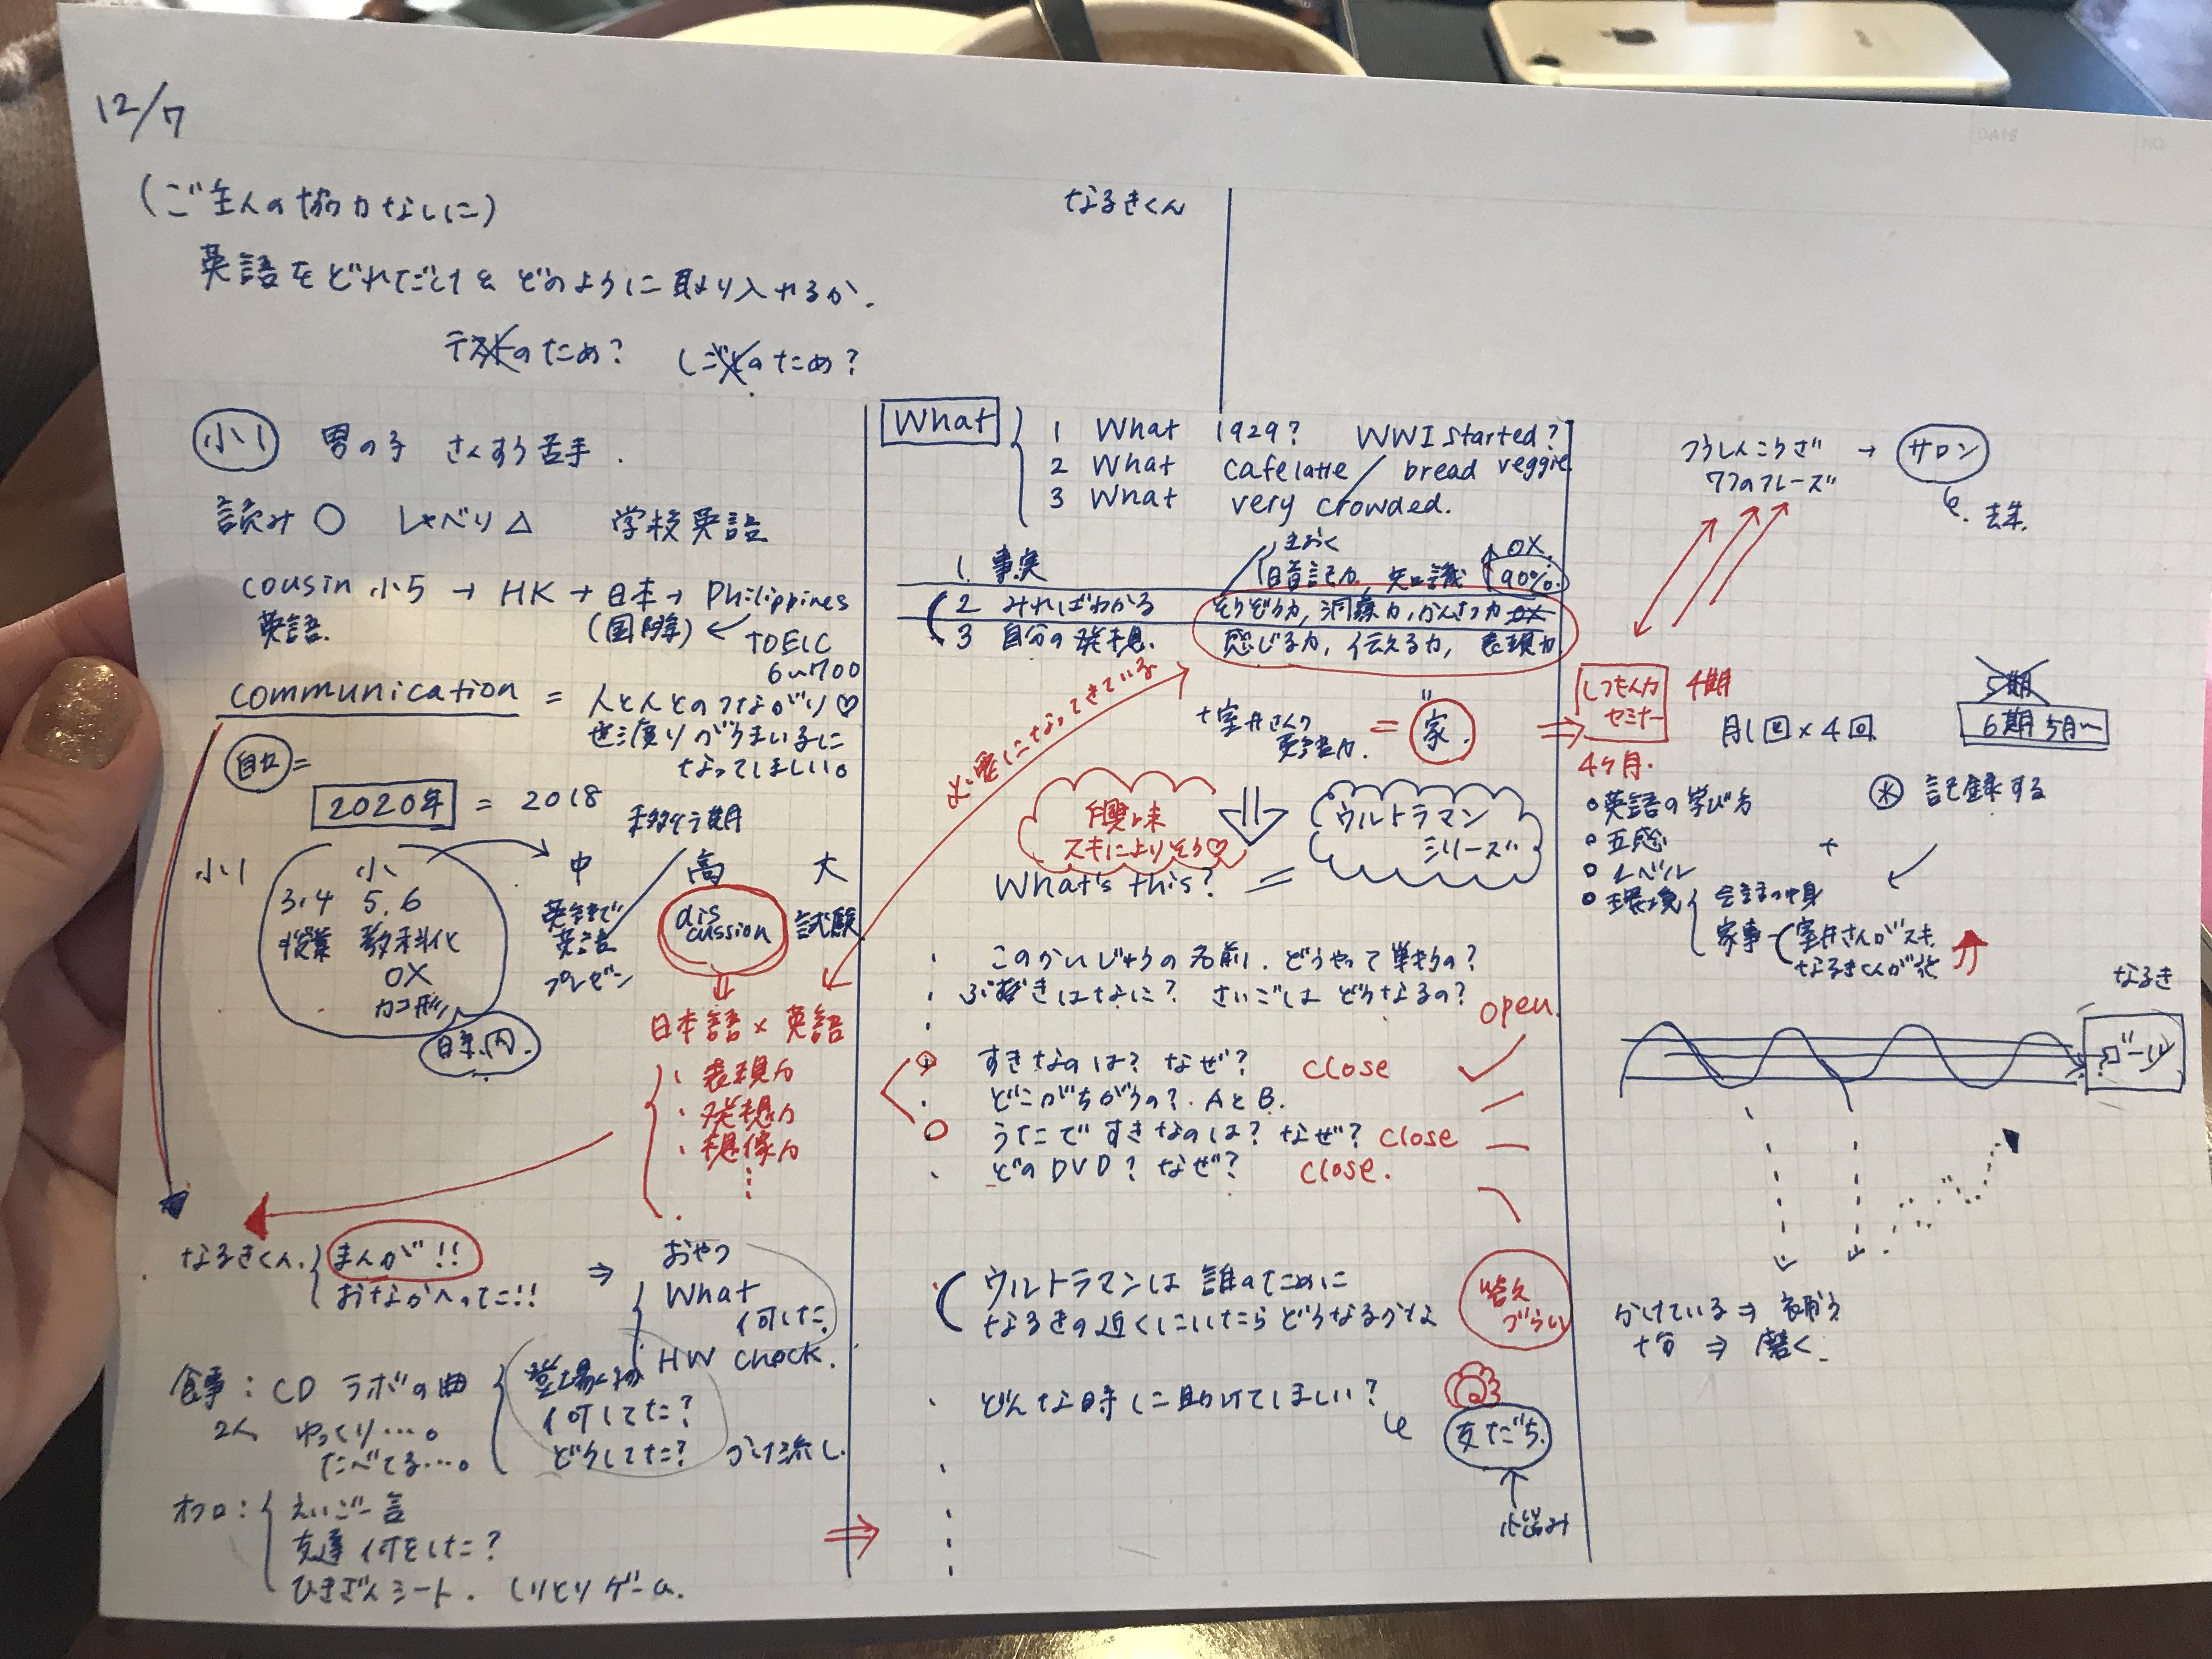 12/7
(ご主人の協力なしに)
英語をどれだけ & どのように取り入れるか.
テストのため? しごとのため?
なるきくん
小1 男の子 さんすう苦手.
読み○ しゃべり△ 学校英語
cousin 小5 → HK → 日本 → Philippines
英語. (国際) ← TOEIC
600~700
communication = 人と人とのつながり♡
世渡りがうまい子に
なってほしい。
自立=
2020年 = 2018
移行期
小1 小 中 高 大
3.4 5.6
授業 教科化
OX
カコ形
英語で
英語
プレゼン
discussion
試験
日本語 x 英語
・表現力
・発想力
・想像力
なるきくん. まんが!!
おなかへってた!!
⇒ おやつ
What
何した.
HW check.
食事: CD ラボの曲
2人 ゆっくり…。
たべてる…。
登場人物
何してた?
どうしてた? かけ流し.
オフロ: えいご一言
友達 何をした?
ひきざんシート. しりとりゲーム.
What
1 What 1929? WWI started?
2 What cafe latte / bread veggie
3 What very crowded.
1. 事実 暗記力, 知識 90%.
OX.
2 みればわかる そうぞう力, 洞察力, かんさつ力 OX
3 自分の発想. 感じる力, 伝える力, 表現力
必要になってきている
室井さんの
英語力. = "家.
興味
スキによりそう♡
ウルトラマン
シリーズ
What's this? =
・このかいじゅうの名前. どうやって
・ぶきはなに? さいごは どうなるの?
open.
すきなのは? なぜ? close
・どこがちがうの? AとB.
うたで すきなのは? なぜ? close
・どのDVD? なぜ? close.
ウルトラマンは 誰のために
なるきの近くにいたら どうなるかな
答え
づらい
・どんな時に助けてほしい?
友だち.
悩み
つうしんこうざ → サロン
7つのフレーズ
しつもん力
セミナー
4期
4ヶ月.
月1回×4回
5期
6期 5月~
○英語の学び方
○五感
○レベル
○環境
家事
室井さんがスキ.
なるきくんが
※ 記録する
なるき
ゴール
分けている ⇒ 補う
十分 ⇒ 磨く.